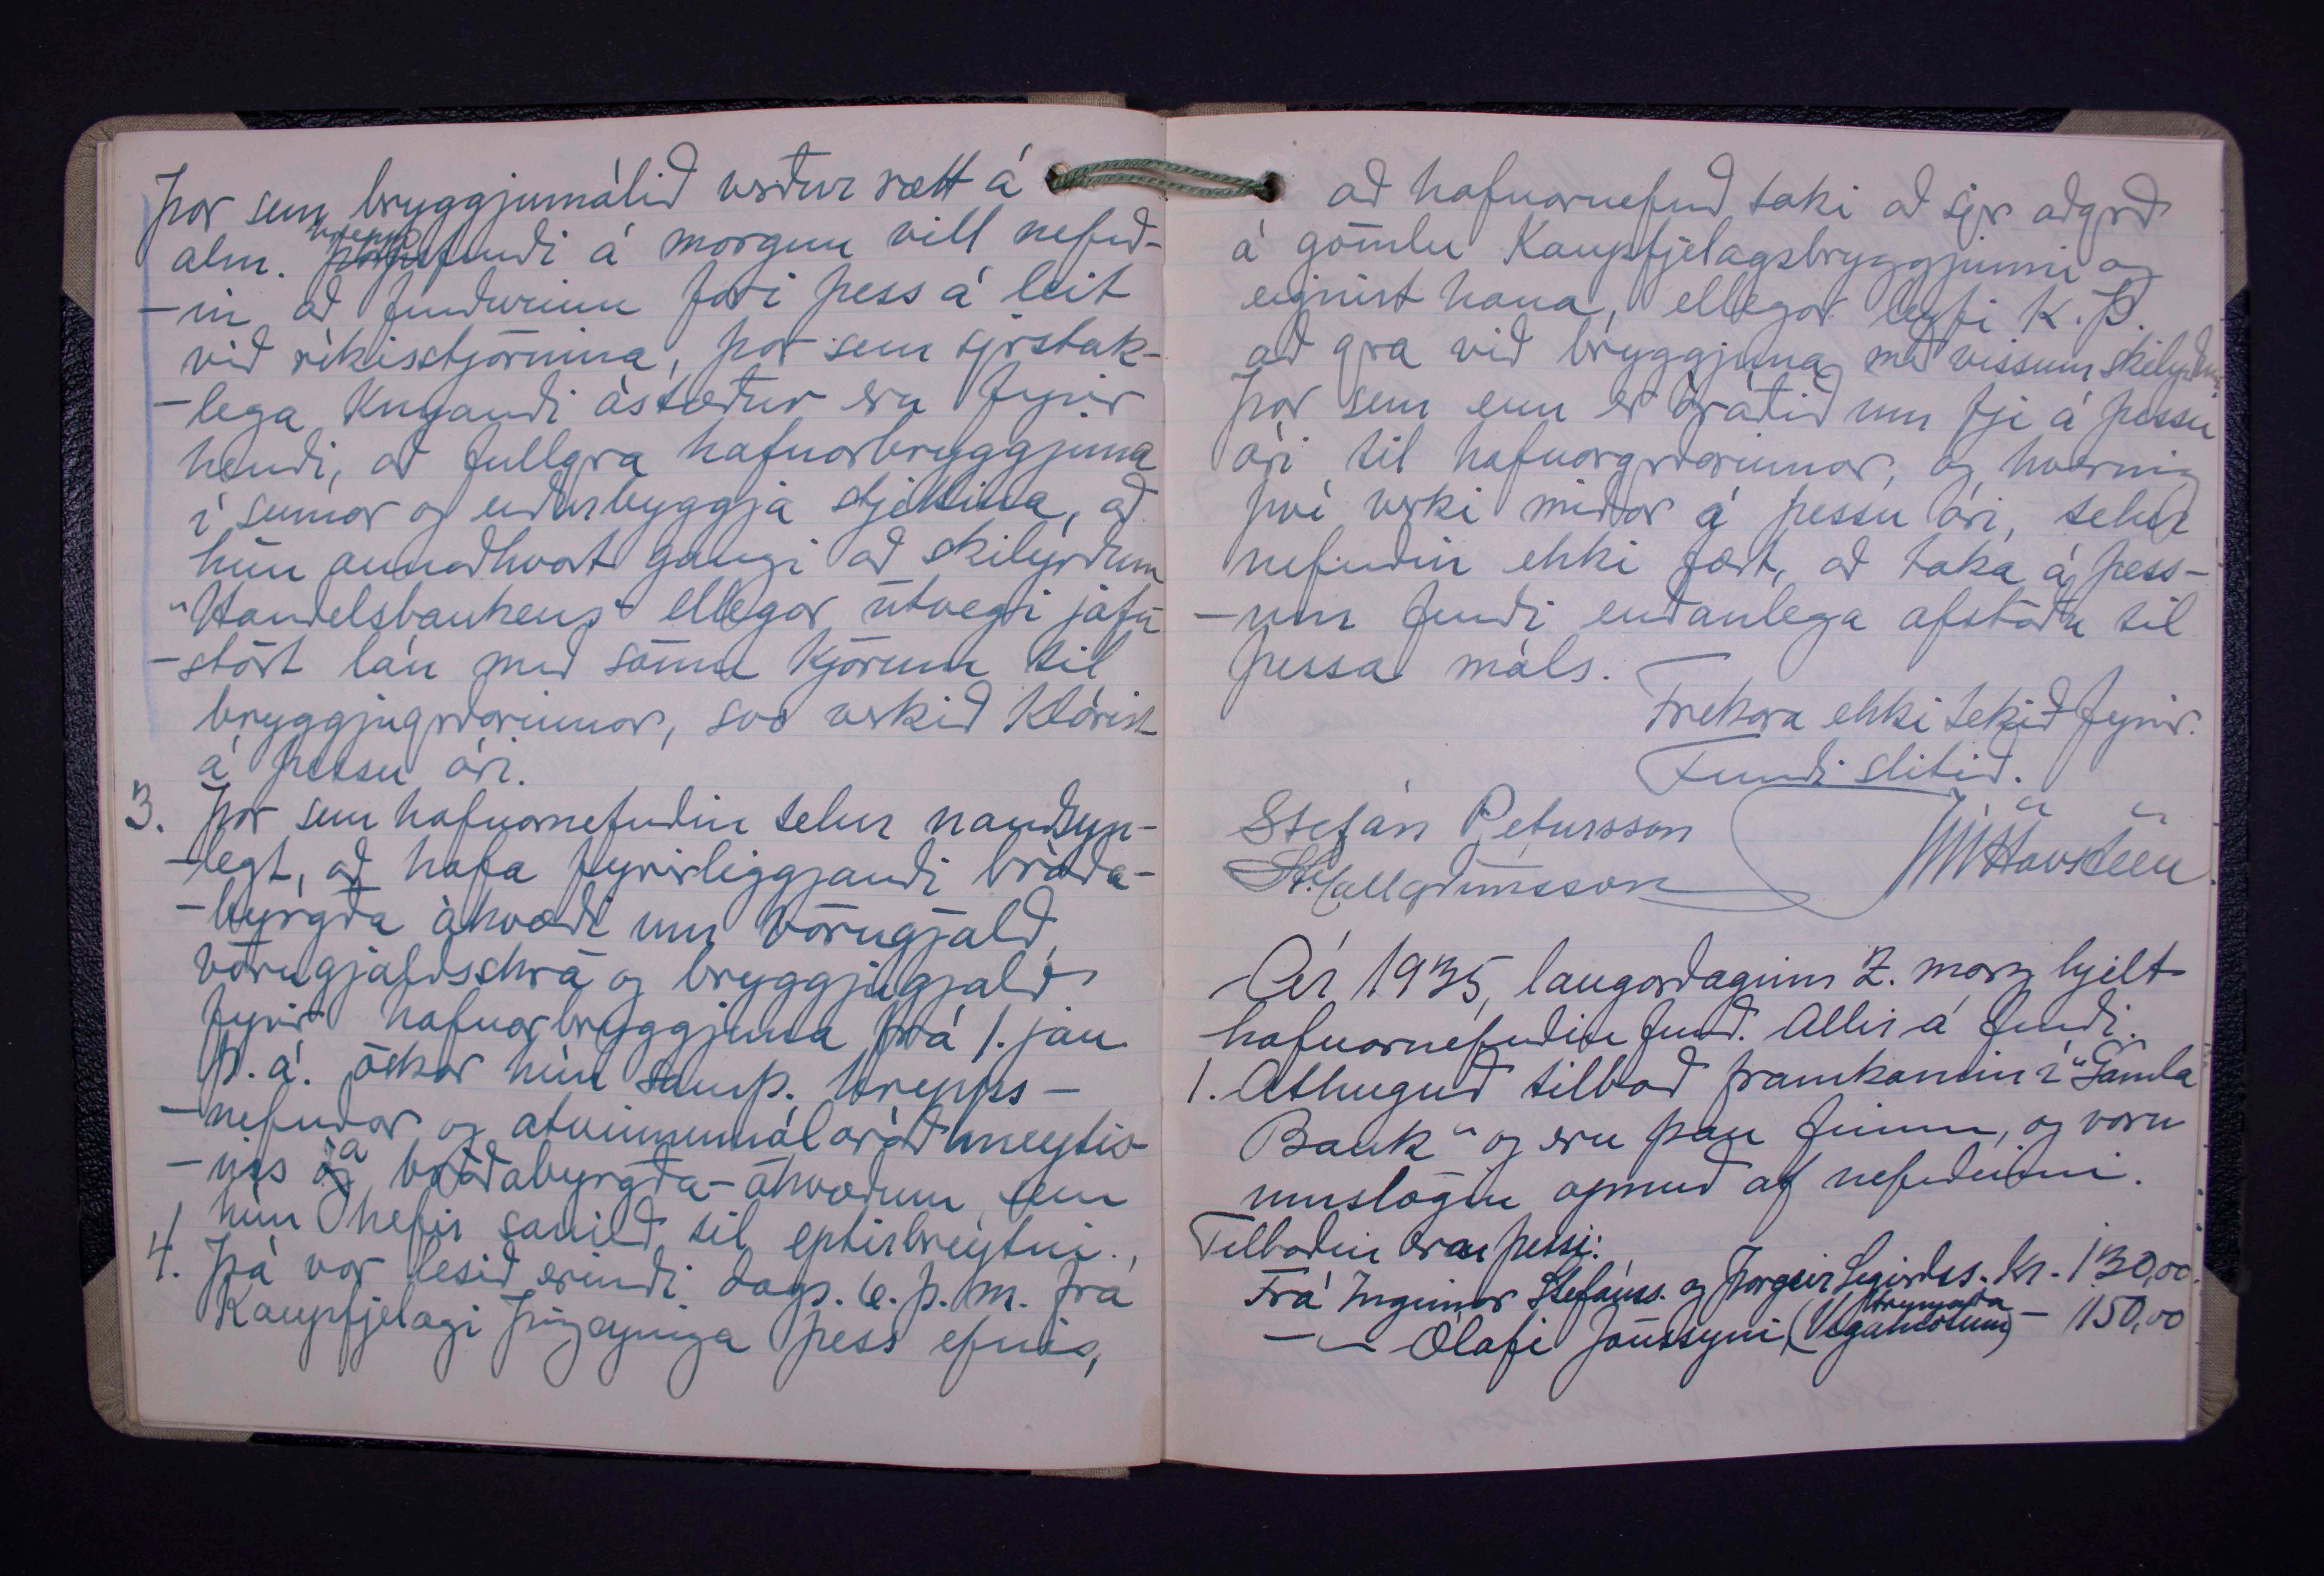 Þar sem bryggjumálið verður rætt á
alm. hreppsfundi á morgun vill nefnd-
-in að fundurinn fari þess á leit
við ríkisstjórnina, þar sem sjerstak-
-lega knýjandi ástæður eru fyrir
hendi, að fullgera hafnarbryggjuna
í sumar og endurbyggja stjettina, að
hún annaðhvort gangi að skilyrðum
"Handelsbankens" ellegar útvegi jafn
-stórt lán með sömu kjörum til
bryggjugerðarinnar, svo verkið klárist
á þessu ári.
3. Þar sem hafnarnefndin telur nauðsyn-
-legt, að hafa fyrirliggjandi bráða-
-byrgða ákvæði um vörugjald,
vörugjaldsskrá og bryggjugjald
fyrir hafnarbryggjuna frá 1. jan
þ. á. óskar hún samþ. hrepps-
-nefndar og atvinnumálaráðuneytis-
-ins á bráðabyrgða-ákvæðum, sem
hún hefir samið til eptirbreytni.
4. Þá var lesið erindi dags. 6. þ. m. frá
Kaupfjelagi Þingeyinga þess efnis,
að hafnarnefnd taki að sjer aðgerð
á gömlu Kaupfjelagsbryggjunni og
eignist hana, ellegar leyfi K. Þ.
að gera við bryggjuna með vissum skilyrðum
Þar sem enn er óráðið um fje á þessu
ári til hafnargerðarinnar, og hvernig
því verki miðar á þessu ári, telur
nefndin ekki fært, að taka á þess-
-um fundi endanlega afstöðu til
þessa máls.
Frekara ekki tekið fyrir.
Fundi slitið.
Stefán Pétursson
St. Hallgrímsson
JHavsteen
Ár 1935, laugardaginn 2. marz hjelt
hafnarnefndin fund. Allir á fundi.
1. Athuguð tilboð framkomin í "Gamla
Bauk" og eru þau fimm, og voru
umslögin opnuð af nefndinni.
Tilboðin eru þessi:
Frá Ingimar Stefánss. og Þorgeir Sigurðss. Kr. 130,00.
— " — Ólafi Jónssyni, (Vegamótum) — 150,00